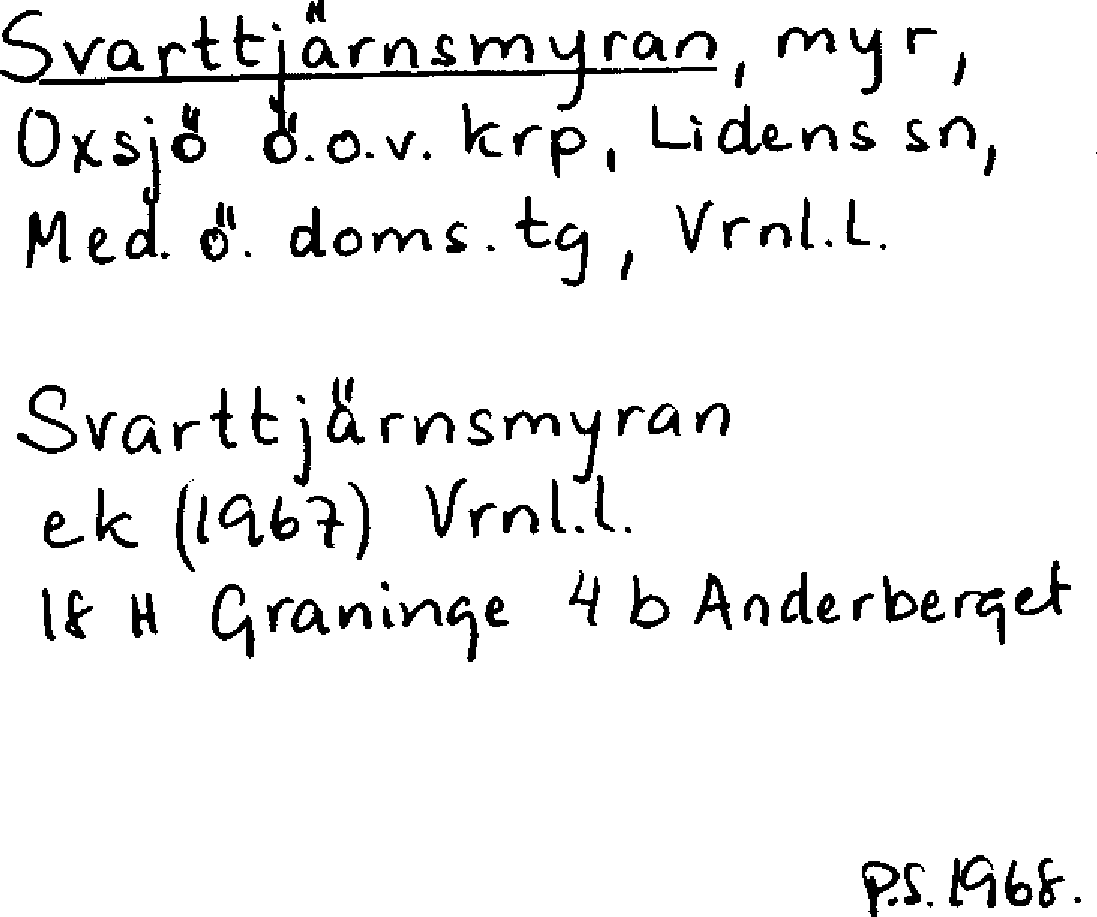 Svarttjärnsmyran, myr,
Oxsjö ö.o.v. krp, Lidens sn,
Med. ö. doms.tg, Vrnl.L.
Svarttjärnsmyran
ek (1967) Vrnl.l.
18 H Graninge 4 b Anderberget
P.S. 1968.